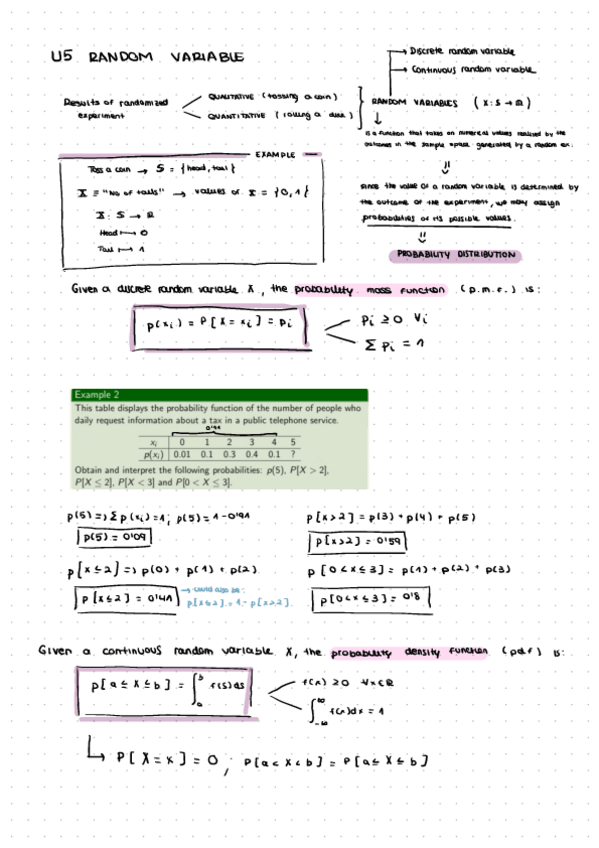 U5 RANDOM VARIABLE
→ Discrete random variable
→ Continuous random variable
Results of randomized experiment
QUALITATIVE (tossing a coin)
QUANTITATIVE (rolling a dice)
RANDOM VARIABLES (X: S → R)
is a function that takes on numerical values realized by the
outcomes in the sample space generated by a random ex.
since the value of a random variable is determined by
the outcome of the experiment, we may assign
probabilities of its possible values.
PROBABILITY DISTRIBUTION
EXAMPLE
Toss a coin → S = {head, tail}
X = "No of tails" → values of X = {0,1}
X: S → R
Head ↦ 0
Tail ↦ 1
Given a discrete random variable X, the probability mass function (p.m.f.) is:
p(xi) = P[X = xi] = pi
pi ≥ 0 ∀i
Σ pi = 1
Example 2
This table displays the probability function of the number of people who
daily request information about a tax in a public telephone service.
0'91
xi 0 1 2 3 4 5
p(xi) 0.01 0.1 0.3 0.4 0.1 ?
Obtain and interpret the following probabilities: p(5), P[X > 2],
P[X ≤ 2], P[X < 3] and P[0 < X ≤ 3].
p(5) => Σ p(xi) = 1; p(5) = 1 - 0'91
p(5) = 0'09
p[X>2] = p(3) + p(4) + p(5)
p[X>2] = 0'59
p[X≤2] => p(0) + p(1) + p(2)
p[X≤2] = 0'41
→ could also be:
p[X≤2] = 1 - p[X>2].
p[0<X≤3] = p(1) + p(2) + p(3)
p[0<X≤3] = 0'8
Given a continuous random variable X, the probability density function (pdf) is:
p[a ≤ X ≤ b] = ∫ₐᵇ f(s)ds
f(x) ≥ 0 ∀x∈R
∫₋∞^∞ f(x)dx = 1
P[X = x] = 0 ; P[a < X < b] = P[a ≤ X ≤ b]